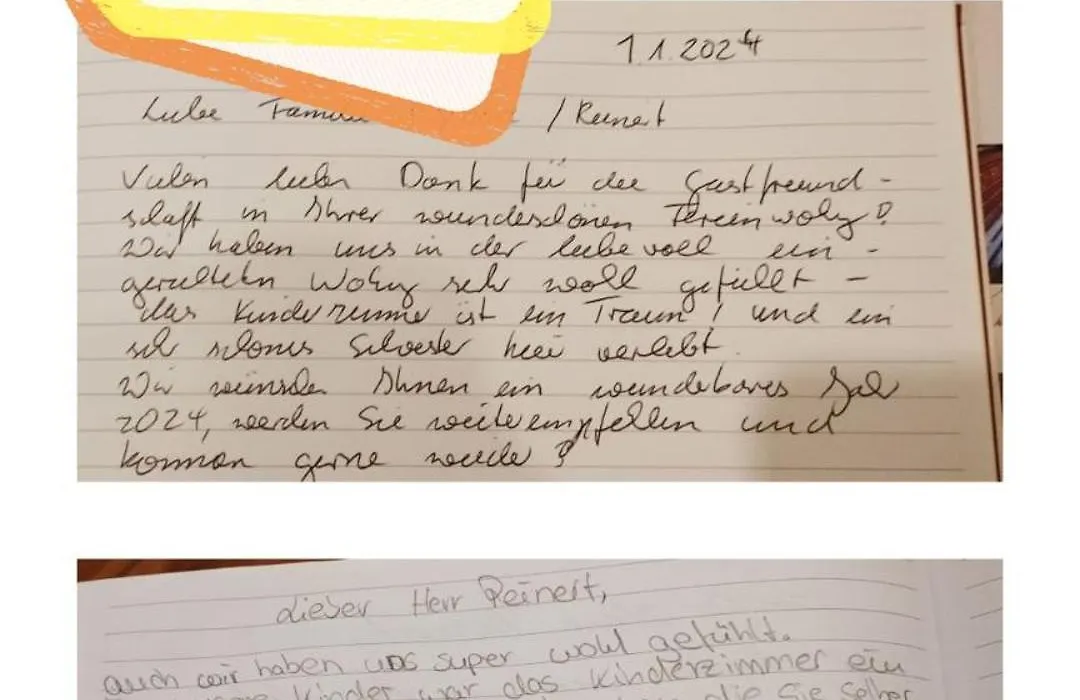 1.1.2024
Liebe Famil / Reinert
Vielen lieben Dank für die Gastfreund-
schaft in Ihrer wunderschönen Ferienwohg!
Wir haben uns in der liebevoll ein-
gerichteten Wohg sehr wohl gefühlt -
das Kinderzimmer ist ein Traum! und ein
sehr schönes Silvester hier verlebt.
Wir wünschen Ihnen ein wunderbares Jahr
2024, werden Sie weiterempfehlen und
kommen gerne wieder!
Lieber Herr Reinert,
auch wir haben uns super wohl gefühlt.
Kinder war das Kinderzimmer ein
die Sie selber